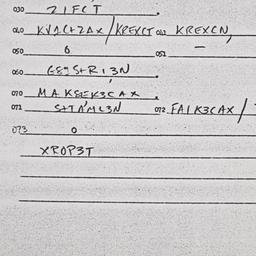 030 ZIFCT
040 KVACTZAX/KREXCT 041 KREXCN,
050 6 051 —
060 GESSTRI3N
070 MAKSEK3CAX.
071 S+TAML3N 072 FAIK3CAX/
073 0
XROP3T